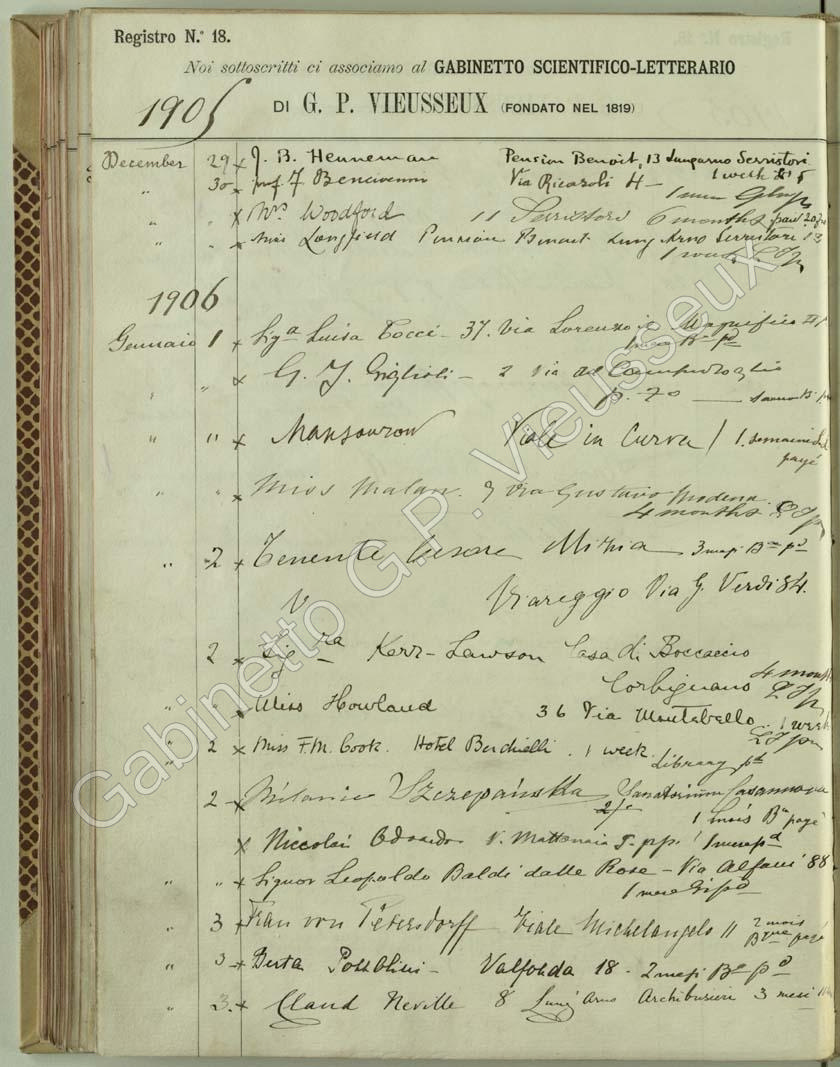 Registro N.° 18.
Noi sottoscritti ci associamo al GABINETTO SCIENTIFICO-LETTERARIO
1905 DI G. P. VIEUSSEUX (FONDATO NEL 1819)
December 29 x J. B. Henneman Pension Benoit, 13 Lungarno Serristori
1 week
" 30 x prof. F Via Ricasoli 4 –
" " x Mrs Woodford 11 Serristori 6 months paid
" " x Miss Longfield Pension Benoit Lung Arno Serristori 13
1 week
1906
Gennaio 1 x Siga Luisa Tocci – 37. Via Lorenzo il Magnifico
1 mese Ba pd
" " x G. J. Giglioli – 2 Via del
p. 70
" " x Mansourow Viale in Curva 1 1. semaine
payé
" " x Miss Malan. 9 Via Gustavo Modena.
4 months
" 2 x Tenente Cesare 3 mesi Ba pd
Viareggio Via G. Verdi 84.
2 x Sigra Kerr-Lawson Casa di Boccaccio
Corbignano 4 months
" " x Miss Howland 36 Via Montebello. 1 week
" 2 x Miss F. M. Cook. Hotel Berchielli. 1 week.
Library pd
2 x Mélanie Szczepańska Sanatorium
1 mois Ba payé
x Niccolai Odoardo V. Mattonaia 1 mese pd
" " x Signor Leopoldo Baldi dalle Rose – Via Alfani 88
1 mese
" 3 x Frau von Petersdorff Viale Michelangelo 11 2 mois
payé
" 3 x Berta – Valfonda 18 – 2 mesi Ba pd
" 3. x Claud Neville 8 Lung Arno Archibusieri 3 mesi
Gabinetto G.P. Vieusseux